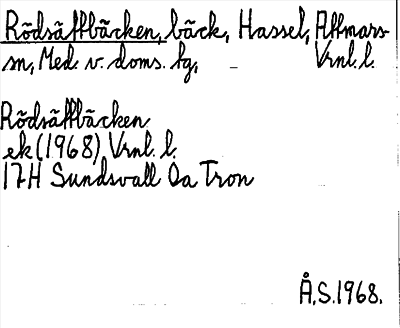 Rödsäffbäcken, bäck, Hassel, Attmars-
sn, Med. v. doms. hg, Vrnl. l.
Rödsäffbäcken
ek (1968) Vrnl. l.
17H Sundsvall Oa Tron
Å.S. 1968.